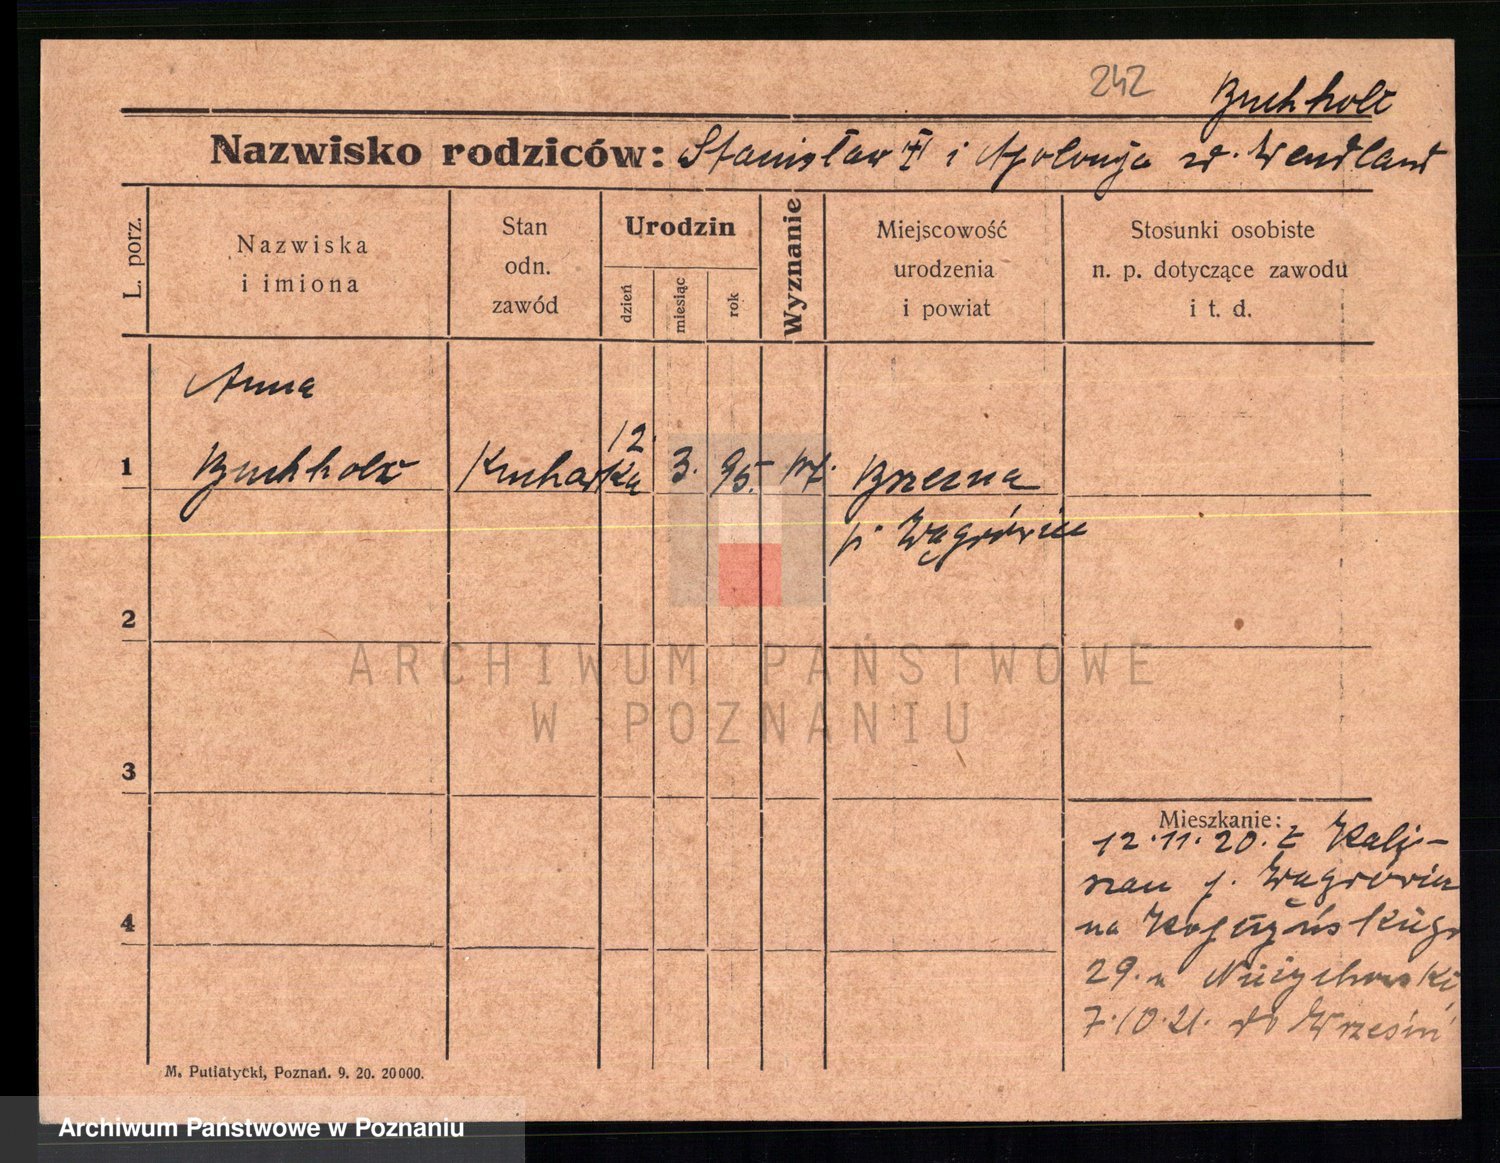 242
Buchholz
Nazwisko rodziców: Stanisław † i Apolonja zd. Wendland
L. porz.
Nazwiska
i imiona
Stan
odn.
zawód
Urodzin
dzień
miesiąc
rok
Wyznanie
Miejscowość
urodzenia
i powiat
Stosunki osobiste
n. p. dotyczące zawodu
i t. d.
Anna
1 Buchholz Kucharka 12. 3. 95. kat. Brzezna
p. Wągrówiec
2
3
4
Mieszkanie:
12.11.20. z Kali-
szan p. Wągrówiec
na
29. u Niezychowski
7.10.21. do Wrześni
M. Putiatycki, Poznań. 9. 20. 20000.
ARCHIWUM PAŃSTWOWE
W POZNANIU
Archiwum Państwowe w Poznaniu